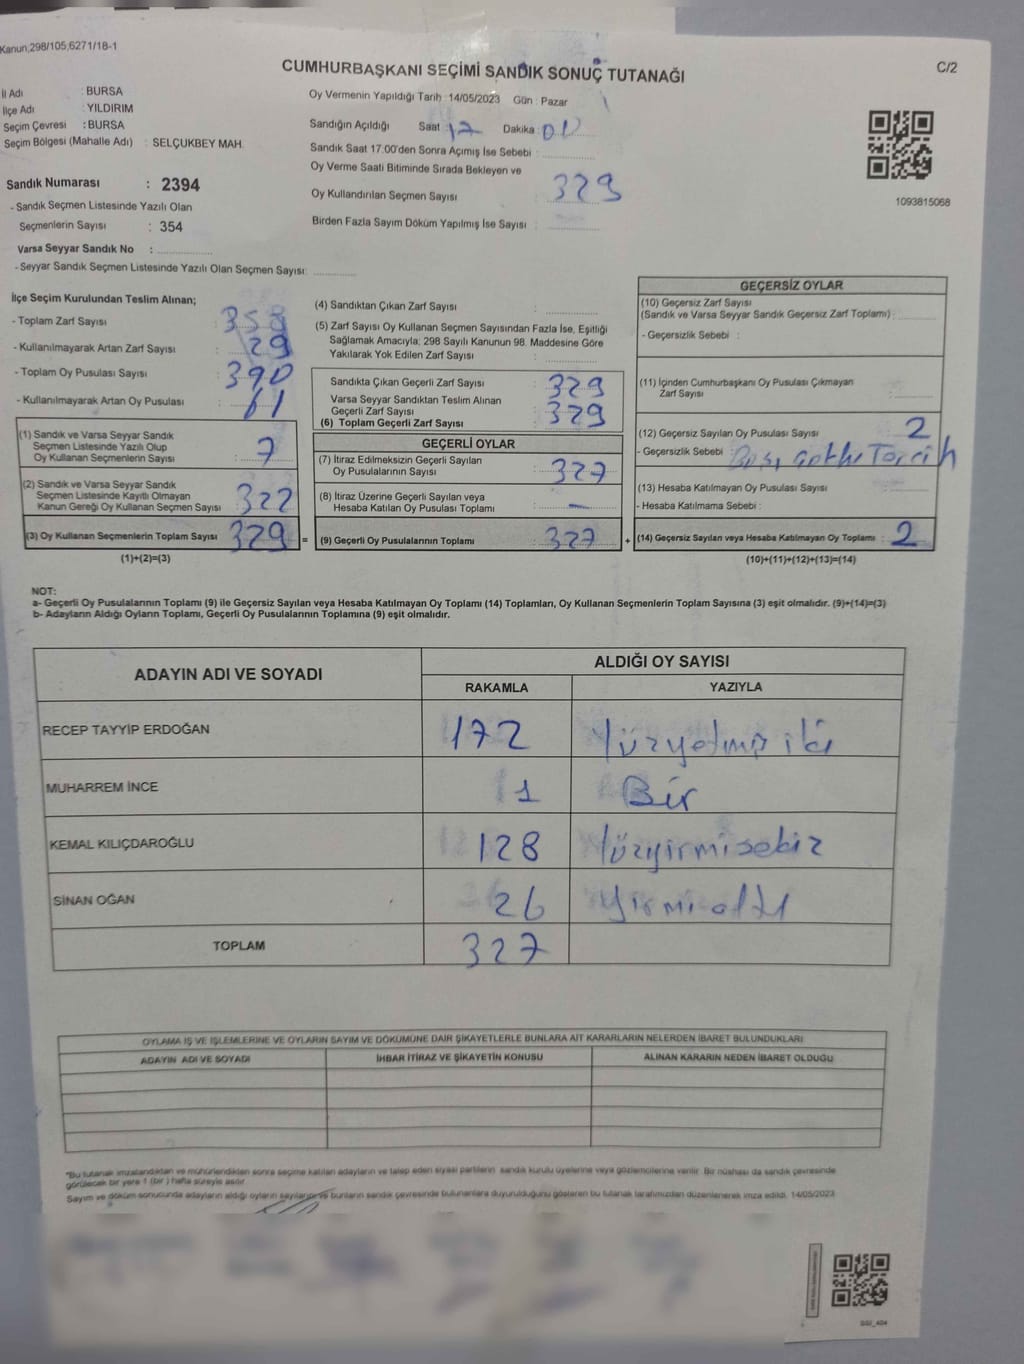 Kanun,298/105,6271/18-1
C/2
CUMHURBAŞKANI SEÇİMİ SANDIK SONUÇ TUTANAĞI
İl Adı : BURSA
İlçe Adı : YILDIRIM
Seçim Çevresi : BURSA
Seçim Bölgesi (Mahalle Adı) : SELÇUKBEY MAH.
Oy Vermenin Yapıldığı Tarih : 14/05/2023 Gün : Pazar
Sandığın Açıldığı Saat : 17 Dakika : 00
Sandık Saat 17.00'den Sonra Açımış İse Sebebi :
Oy Verme Saati Bitiminde Sırada Bekleyen ve
Oy Kullandırılan Seçmen Sayısı : 329
Birden Fazla Sayım Döküm Yapılmış İse Sayısı :
1093815068
Sandık Numarası : 2394
- Sandık Seçmen Listesinde Yazılı Olan
Seçmenlerin Sayısı : 354
Varsa Seyyar Sandık No :
- Seyyar Sandık Seçmen Listesinde Yazılı Olan Seçmen Sayısı:
İlçe Seçim Kurulundan Teslim Alınan;
- Toplam Zarf Sayısı : 358
- Kullanılmayarak Artan Zarf Sayısı : 29
- Toplam Oy Pusulası Sayısı : 390
- Kullanılmayarak Artan Oy Pusulası : 61
(1) Sandık ve Varsa Seyyar Sandık
Seçmen Listesinde Yazılı Olup
Oy Kullanan Seçmenlerin Sayısı : 7
(2) Sandık ve Varsa Seyyar Sandık
Seçmen Listesinde Kayıtlı Olmayan
Kanun Gereği Oy Kullanan Seçmen Sayısı : 322
(3) Oy Kullanan Seçmenlerin Toplam Sayısı : 329
(1)+(2)=(3)
(4) Sandıktan Çıkan Zarf Sayısı :
(5) Zarf Sayısı Oy Kullanan Seçmen Sayısından Fazla İse, Eşitliği
Sağlamak Amacıyla, 298 Sayılı Kanunun 98. Maddesine Göre
Yakılarak Yok Edilen Zarf Sayısı :
Sandıkta Çıkan Geçerli Zarf Sayısı : 329
Varsa Seyyar Sandıktan Teslim Alınan
Geçerli Zarf Sayısı : 329
(6) Toplam Geçerli Zarf Sayısı :
GEÇERLİ OYLAR
(7) İtiraz Edilmeksizin Geçerli Sayılan
Oy Pusulalarının Sayısı : 327
(8) İtiraz Üzerine Geçerli Sayılan veya
Hesaba Katılan Oy Pusulası Toplamı : —
= (9) Geçerli Oy Pusulalarının Toplamı : 327
GEÇERSİZ OYLAR
(10) Geçersiz Zarf Sayısı
(Sandık ve Varsa Seyyar Sandık Geçersiz Zarf Toplamı) :
- Geçersizlik Sebebi :
(11) İçinden Cumhurbaşkanı Oy Pusulası Çıkmayan
Zarf Sayısı :
(12) Geçersiz Sayılan Oy Pusulası Sayısı : 2
- Geçersizlik Sebebi : Tercih
(13) Hesaba Katılmayan Oy Pusulası Sayısı :
- Hesaba Katılmama Sebebi :
+ (14) Geçersiz Sayılan veya Hesaba Katılmayan Oy Toplamı : 2
(10)+(11)+(12)+(13)=(14)
NOT:
a- Geçerli Oy Pusulalarının Toplamı (9) ile Geçersiz Sayılan veya Hesaba Katılmayan Oy Toplamı (14) Toplamları, Oy Kullanan Seçmenlerin Toplam Sayısına (3) eşit olmalıdır. (9)+(14)=(3)
b- Adayların Aldığı Oyların Toplamı, Geçerli Oy Pusulalarının Toplamına (9) eşit olmalıdır.
ADAYIN ADI VE SOYADI ALDIĞI OY SAYISI
RAKAMLA YAZIYLA
RECEP TAYYİP ERDOĞAN 172 Yüzyetmiş iki
MUHARREM İNCE 1 Bir
KEMAL KILIÇDAROĞLU 128 Yüzyirmisekiz
SİNAN OĞAN 26 Yirmi altı
TOPLAM 327
OYLAMA İŞ VE İŞLEMLERİNE VE OYLARIN SAYIM VE DÖKÜMÜNE DAİR ŞİKAYETLERLE BUNLARA AİT KARARLARIN NELERDEN İBARET BULUNDUKLARI
ADAYIN ADI VE SOYADI İHBAR İTİRAZ VE ŞİKAYETİN KONUSU ALINAN KARARIN NEDEN İBARET OLDUĞU
*Bu tutanak imzalandıktan ve mühürlendikten sonra seçime katılan adayların ve talep eden siyasi partilerin sandık kurulu üyelerine veya gözlemcilerine verilir. Bir nüshası da sandık çevresinde
görülecek bir yere 1 (bir) hafta süreyle asılır.
Sayım ve döküm sonucunda adayların aldığı oyların sayılarını ve bunların sandık çevresinde bulunanlara duyurulduğunu gösteren bu tutanak tarafımızdan düzenlenerek imza edildi. 14/05/2023